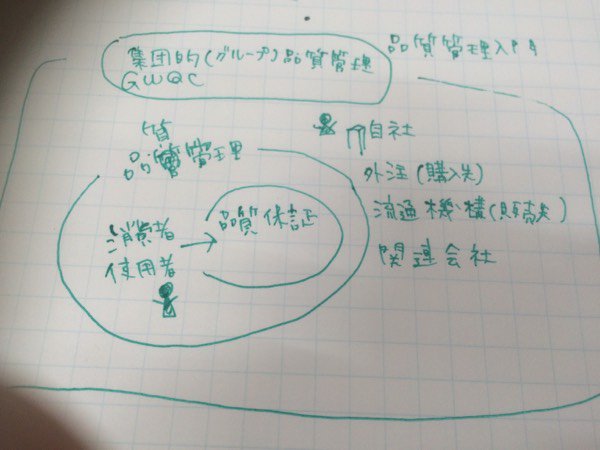 集団的(グループ)品質管理
GWQC
品質管理入門
質
品質管理
自社
外注(購入先)
流通機構(販売先)
関連会社
消費者
使用者
品質保証